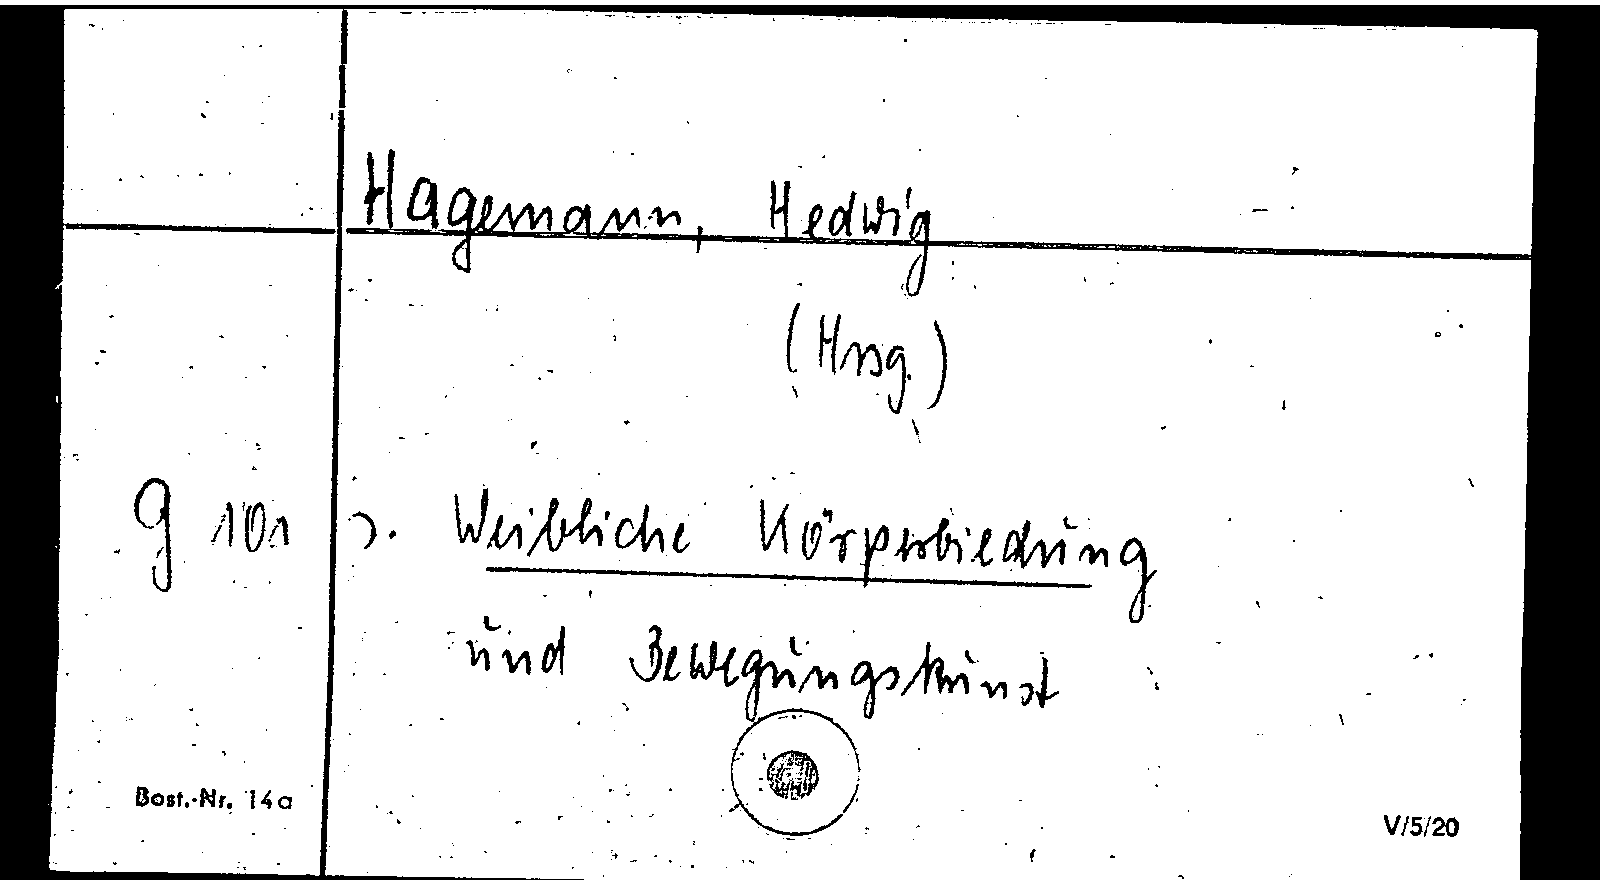 Hagemann, Hedwig
(Hrsg.)
g 101 s. Weibliche Körperbildung
und Bewegungskunst
Best.-Nr. 14a
V/5/20